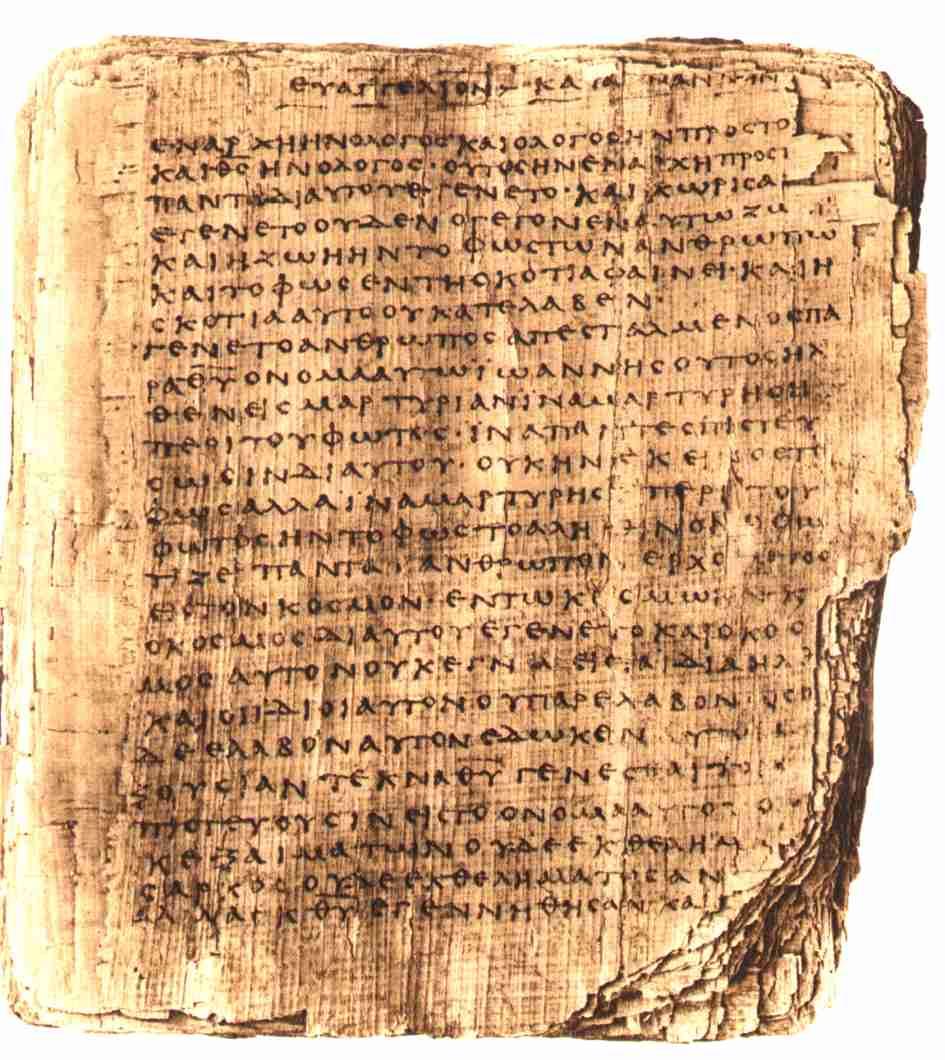 ΕΥΑΓΓΕΛΙΟΝ ΚΑΤΑ
ΕΝΑΡΧΗΗΝΟΛΟΓΟΣΚΑΙΟΛΟΓΟΣΗΝΠΡΟΣΤΟ
ΚΑΙΘ̅Σ̅ΗΝΟΛΟΓΟΣ·ΟΥΤΟΣΗΝΕΝΑΡΧΗΠΡΟΣΤ
ΠΑΝΤΑΔΙΑΥΤΟΥΕΓΕΝΕΤΟ·ΚΑΙΧΩΡΙΣΑ
ΕΓΕΝΕΤΟΟΥΔΕΝΟΓΕΓΟΝΕΝΕΝΑΥΤΩΖΩ
ΚΑΙΗΖΩΗΗΝΤΟΦΩΣΤΩΝΑΝΘΡΩΠΩ
ΚΑΙΤΟΦΩΣΕΝΤΗΣΚΟΤΙΑΦΑΙΝΕΙ·ΚΑΙΗ
ΣΚΟΤΙΑΑΥΤΟΟΥΚΑΤΕΛΑΒΕΝ·
ΓΕΝΕΤΟΑΝΘΡΩΠΟΣΑΠΕΣΤΑΛΜΕΝΟΣΠΑ
ΡΑΘ̅Υ̅ΟΝΟΜΑΑΥΤΩΪΩΑΝΝΗΣΟΥΤΟΣΗΛ
ΘΕΝΕΙΣΜΑΡΤΥΡΙΑΝΪΝΑΜΑΡΤΥΡΗΣΗ
ΠΕΡΙΤΟΥΦΩΤΟΣ·ΪΝΑΠΑΝΤΕΣΠΙΣΤΕΥ
ΣΩΣΙΝΔΙΑΥΤΟΥ·ΟΥΚΗΝΕΚΕΙΝΟΣΤΟ
ΦΩΣΑΛΛΑΪΝΑΜΑΡΤΥΡΗΣΗΠΕΡΙΤΟΥ
ΦΩΤΟΣΗΝΤΟΦΩΣΤΟΑΛΗΘΗΝΟΝΟΦΩ
ΤΙΖΕΙΠΑΝΤΑΑΝΘΡΩΠΟΝΕΡΧΟΜΕΝΟ
ΕΙΣΤΟΝΚΟΣΜΟΝ·ΕΝΤΩΚΟΣΜΩΗΝΚ
ΟΚΟΣΜΟΣΔΙΑΥΤΟΥΕΓΕΝΕΤΟΚΑΙΟΚΟΣ
ΜΟΣΑΥΤΟΝΟΥΚΕΓΝΩΕΙΣΤΑΙΔΙΑΗΛΘ
ΚΑΙΟΙΙΔΙΟΙΑΥΤΟΝΟΥΠΑΡΕΛΑΒΟΝ·ΟΣΟ
ΔΕΕΛΑΒΟΝΑΥΤΟΝΕΔΩΚΕΝΑΥΤΟΙ
ΞΟΥΣΙΑΝΤΕΚΝΑΘ̅Υ̅ΓΕΝΕΣΘΑΙΤΟΙ
ΠΙΣΤΕΥΟΥΣΙΝΕΙΣΤΟΟΝΟΜΑΑΥΤΟΥΟ
ΚΕΞΑΙΜΑΤΩΝΟΥΔΕΕΚΘΕΛΗΜΑ
ΣΑΡΚΟΣΟΥΔΕΕΚΘΕΛΗΜΑΤΟΣΑΝ
ΑΛΛΑΕΚΘ̅Υ̅ΕΓΕΝΝΗΘΗΣΑΝΚΑΙ